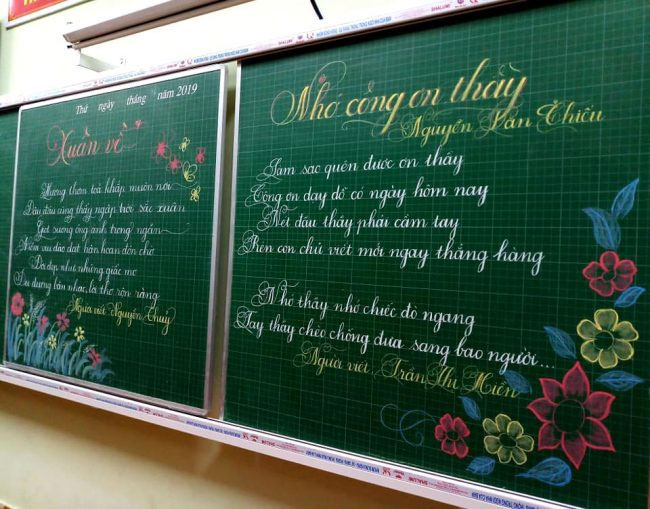 Thứ ngày tháng năm 2019
Xuân về
Hương thơm toả khắp muôn nơi
Đâu đâu cũng thấy ngập trời sắc xuân
Giọt sương óng ánh trong ngần
Niềm vui dào dạt hân hoan đón chờ
Đời đẹp như những giấc mơ
Du dương bản nhạc, lời thơ rộn ràng
Người viết: Nguyễn Thuỷ
Nhớ công ơn thầy
Nguyễn
Làm sao quên được ơn thầy
Công ơn dạy dỗ có ngày hôm nay
Nét đầu thầy phải cầm tay
Rèn con chữ viết mới ngay thẳng hàng
Nhớ thầy nhớ chiếc đò ngang
Tay thầy chèo chống đưa sang bao người...
Người viết: Trần Thu Hiền